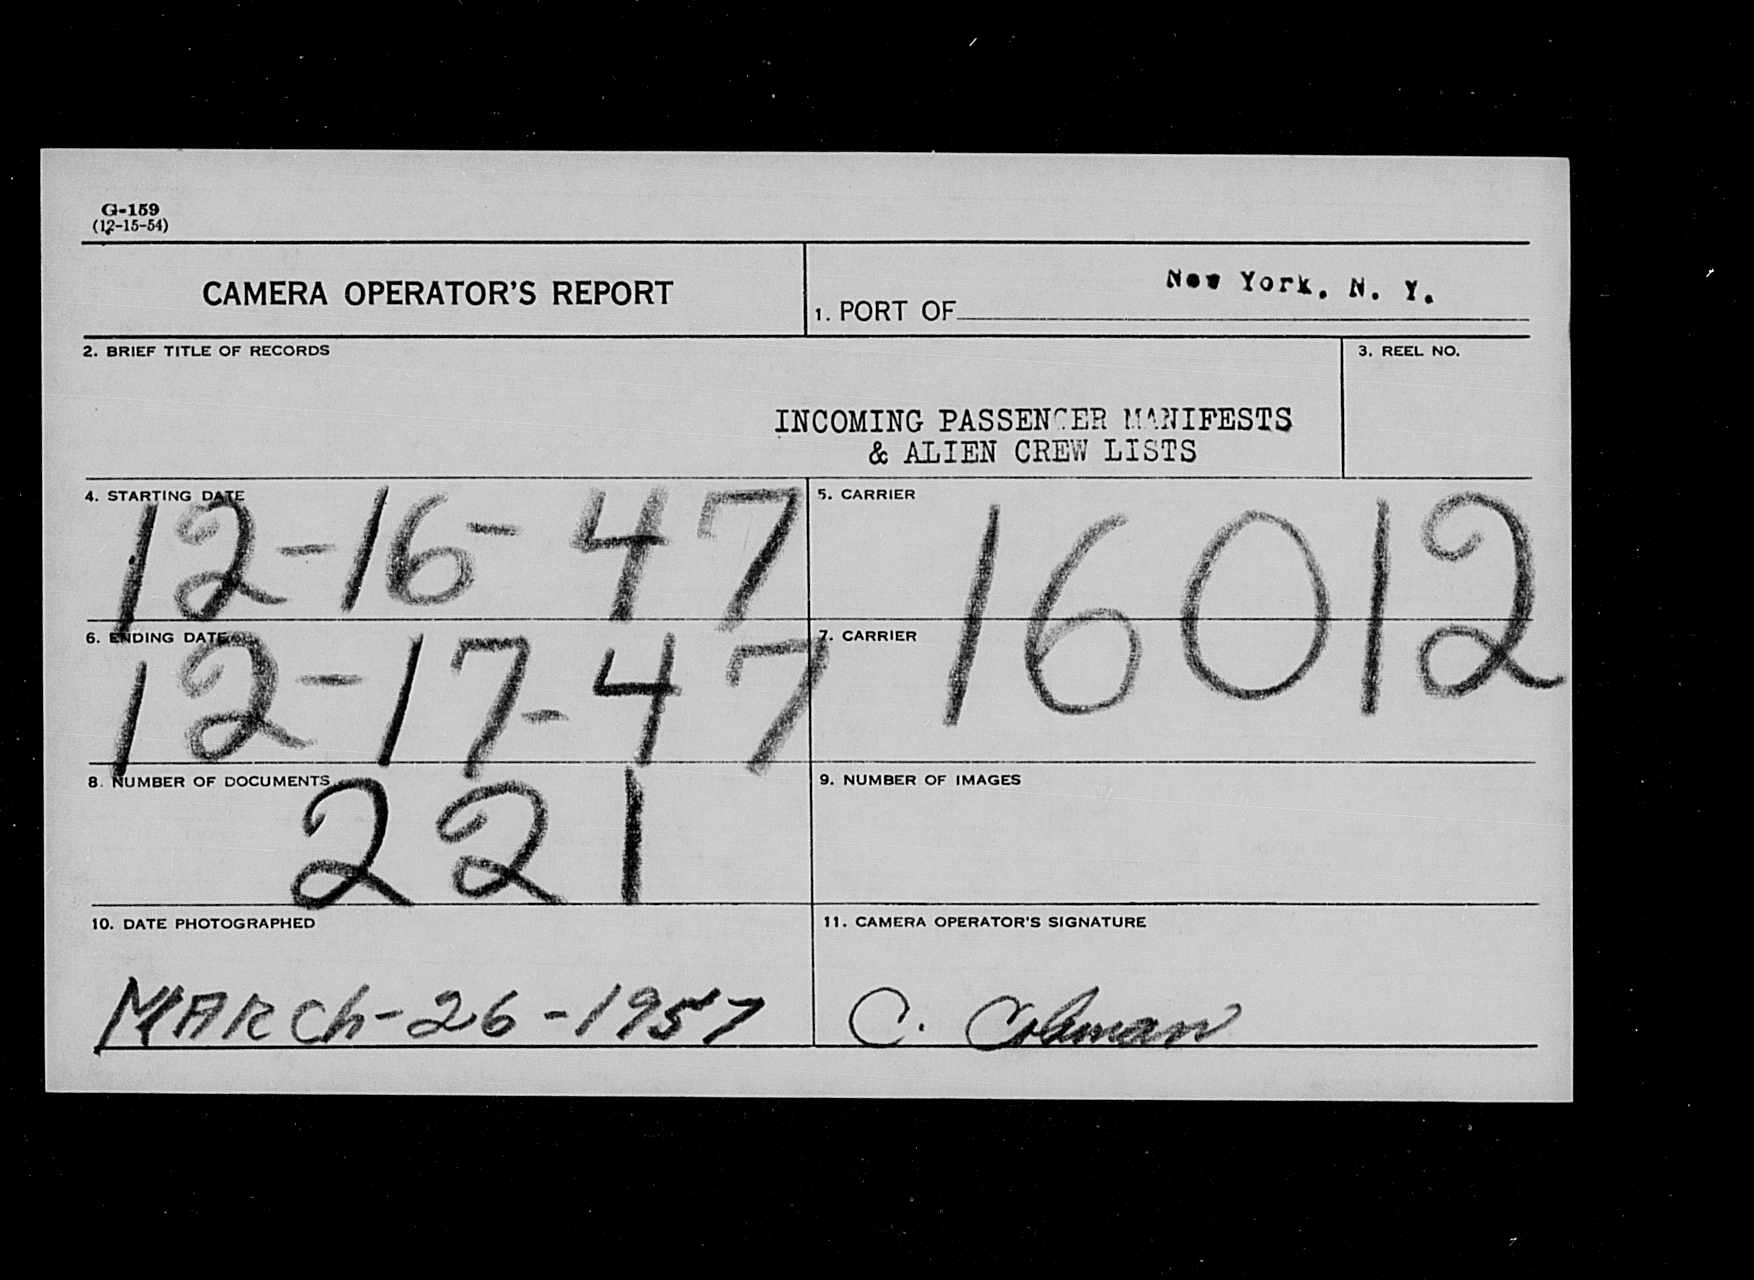 G-159
(12-15-54)
CAMERA OPERATOR'S REPORT
1. PORT OF New York, N. Y.
2. BRIEF TITLE OF RECORDS
3. REEL NO.
INCOMING PASSENGER MANIFESTS
& ALIEN CREW LISTS
4. STARTING DATE
12-16-47
5. CARRIER
16012
6. ENDING DATE
12-17-47
7. CARRIER
8. NUMBER OF DOCUMENTS
221
9. NUMBER OF IMAGES
10. DATE PHOTOGRAPHED
MARCh-26-1957
11. CAMERA OPERATOR'S SIGNATURE
C. Coleman